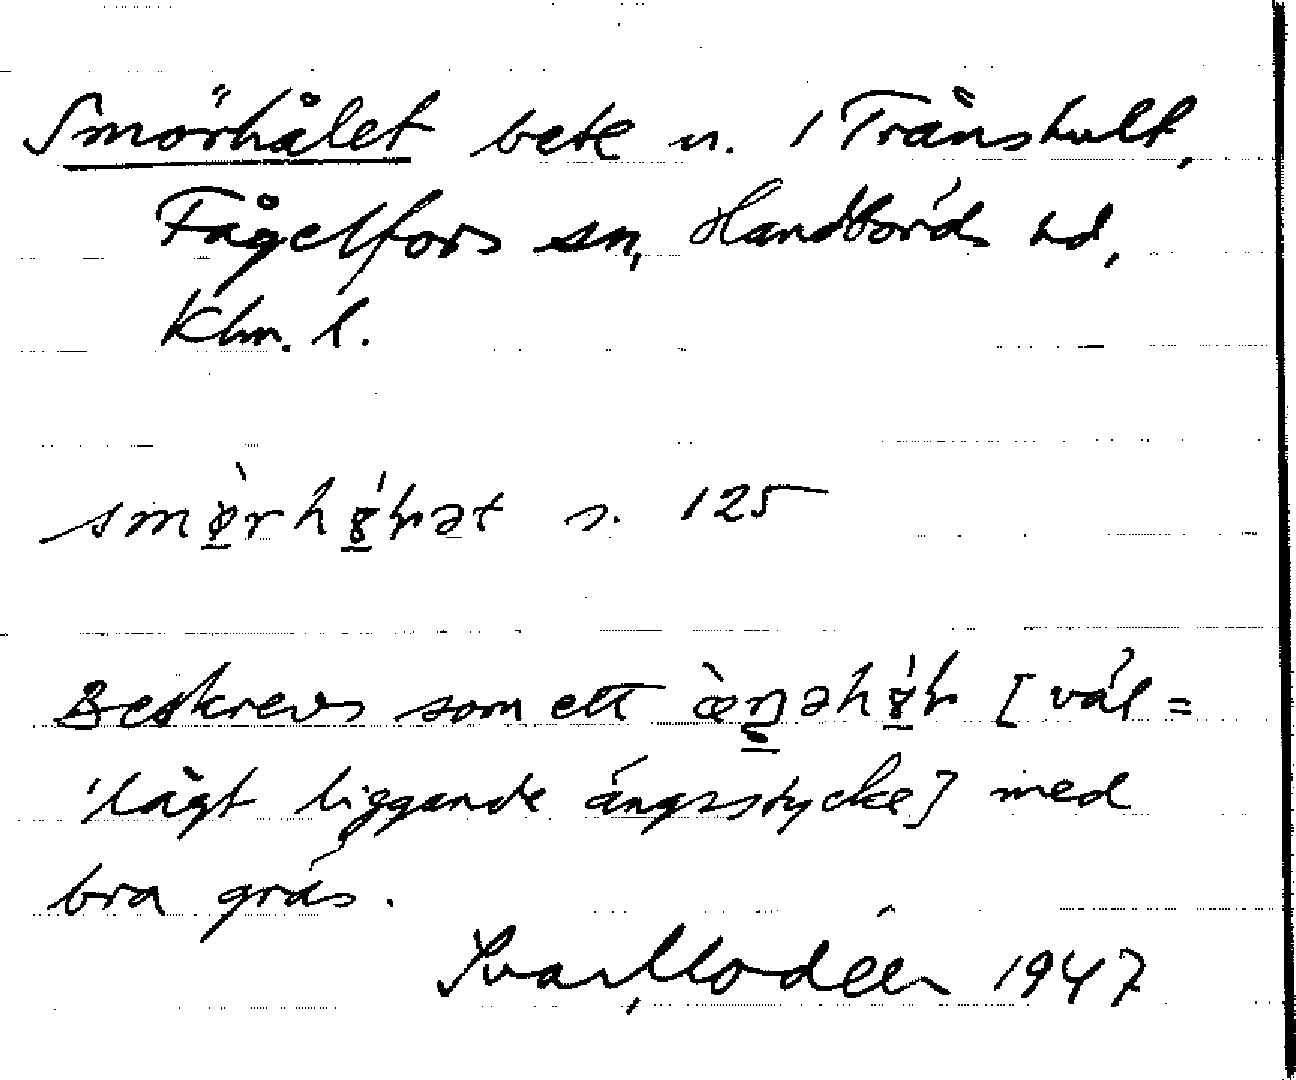 Smörhålet bete n. / Trånshult,
Fågelfors sn, Handbörds hd,
Klm. l.
s. 125
Beskrevs som ett [väl =
'lågt liggande ängsstycke] med
bra gräs.
Ivar Modéer 1947